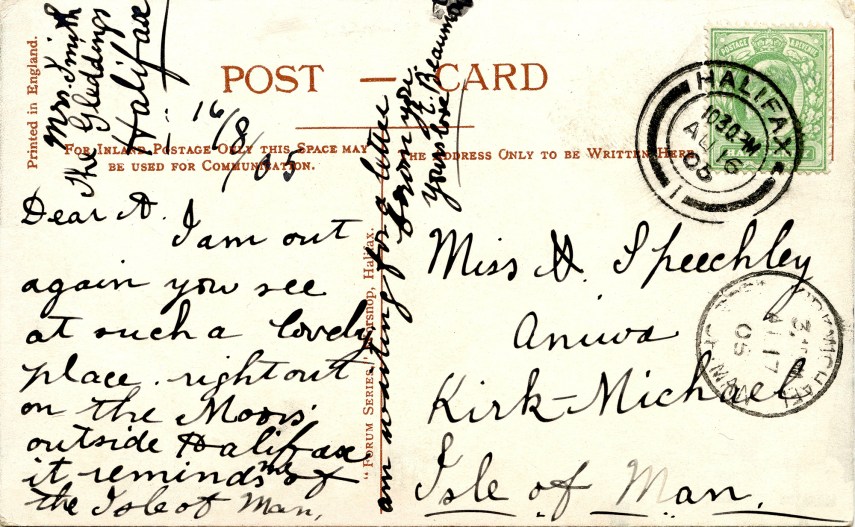 Mrs. Smith
The Gleddings
Halifax
16/8/05
Printed in England.
POST — CARD
For Inland Postage Only this Space may
be used for Communication.
The Address Only to be Written Here
Dear A.
I am out
again you see
at such a lovely
place. right out
on the Moors
outside Halifax
it reminds me of
the Isle of Man.
am waiting for a letter
from you.
Yours love
Beaumont
"Forum Series," Horsnop, Halifax.
Miss A. Speechley
Aniwa
Kirk-Michael
Isle of Man.
POSTAGE & REVENUE
HALF
HALIFAX
10 30 PM
AU 16
05
1
KIRKMICHAEL
AU 17
05
ISLE OF MAN